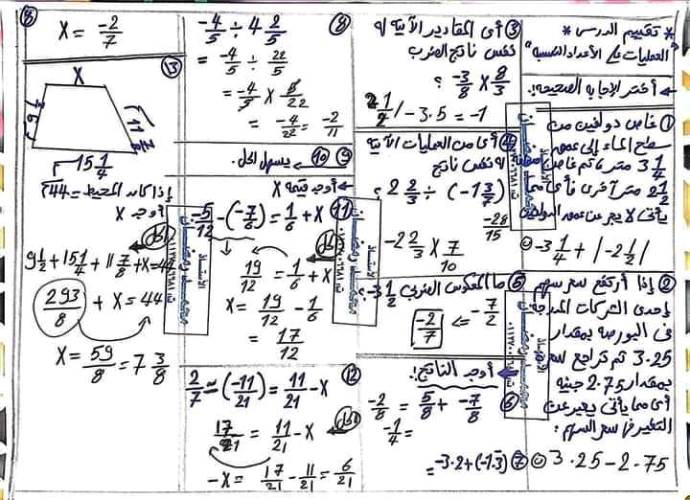 * تقييم الدرس *
"العمليات على الأعداد النسبية"
← أختر الإجابة الصحيحة:.
① غاص دولفين من
سطح الماء إلى عمق
3 1/4 متر ثم غاص
2 1/2 متر أخرى فأى مما
يأتى لا يعبر عن عمق الدولفين
-3 1/4 + |-2 1/2|
② إذا أرتفع سعر سهم
إحدى الشركات المدرجة
فى البورصة بمقدار
3.25 ثم تراجع
بمقدار 2.75 جنيه
أى مما يأتى يعبر عن
التغير فى سعر السهم:
3.25-2.75
③ أى المقادير الآتية له
نفس ناتج الضرب
-3/8 × 8/3 ؟
2 1/2 / -3.5 = -1
④ أى من العمليات الآتية
له نفس ناتج
2 2/3 ÷ (-1 3/7) ؟
-28/15
-2 2/3 × 7/10
⑤ ما المعكوس الضربى -3 1/2 ؟
-2/7 <= -7/2
← أوجد الناتج:.
⑥ 5/8 + -7/8 = -2/8
= -1/4
⑦ -3.2+(-1.3) =
⑧
-4/5 ÷ 4 2/5
= -4/5 ÷ 22/5
= -4/5 × 5/22
= -4/22 = -2/11
⑨ ⑩ يسهل الحل.
← أوجد قيمة X
⑪ -5/12 - (-7/6) = 1/6 + X
الحل
19/12 = 1/6 + X
X = 19/12 - 1/6
= 17/12
⑫
2/7 - (-11/21) = 11/21 - X
الحل
17/21 = 11/21 - X
-X = 17/21 - 11/21 = 6/21
X = -2/7
⑬
X
9 1/2
11 7/8
15 1/4
إذا كان المحيط = 44
أوجد X
الحل
9 1/2 + 15 1/4 + 11 7/8 + X = 44
293/8 + X = 44
X = 59/8 = 7 3/8